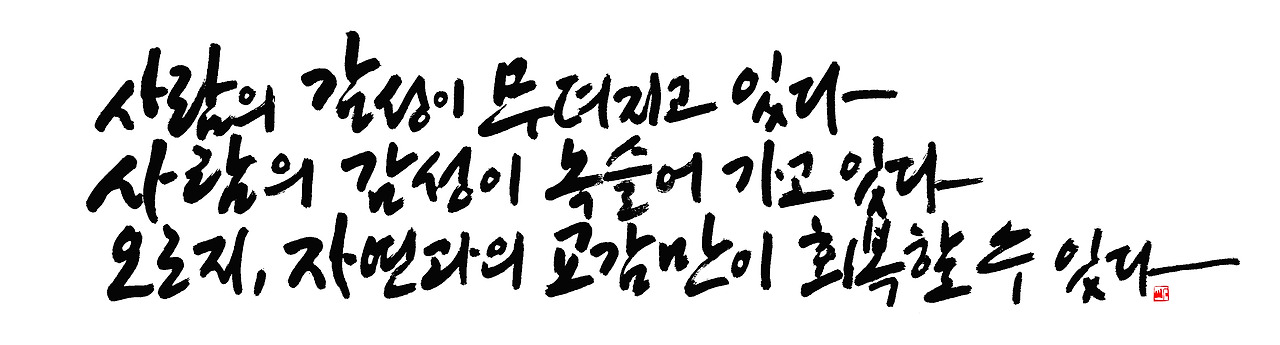 사람의 감성이 무뎌지고 있다
사람의 감성이 녹슬어 가고 있다
오로지, 자연과의 교감만이 회복할 수 있다